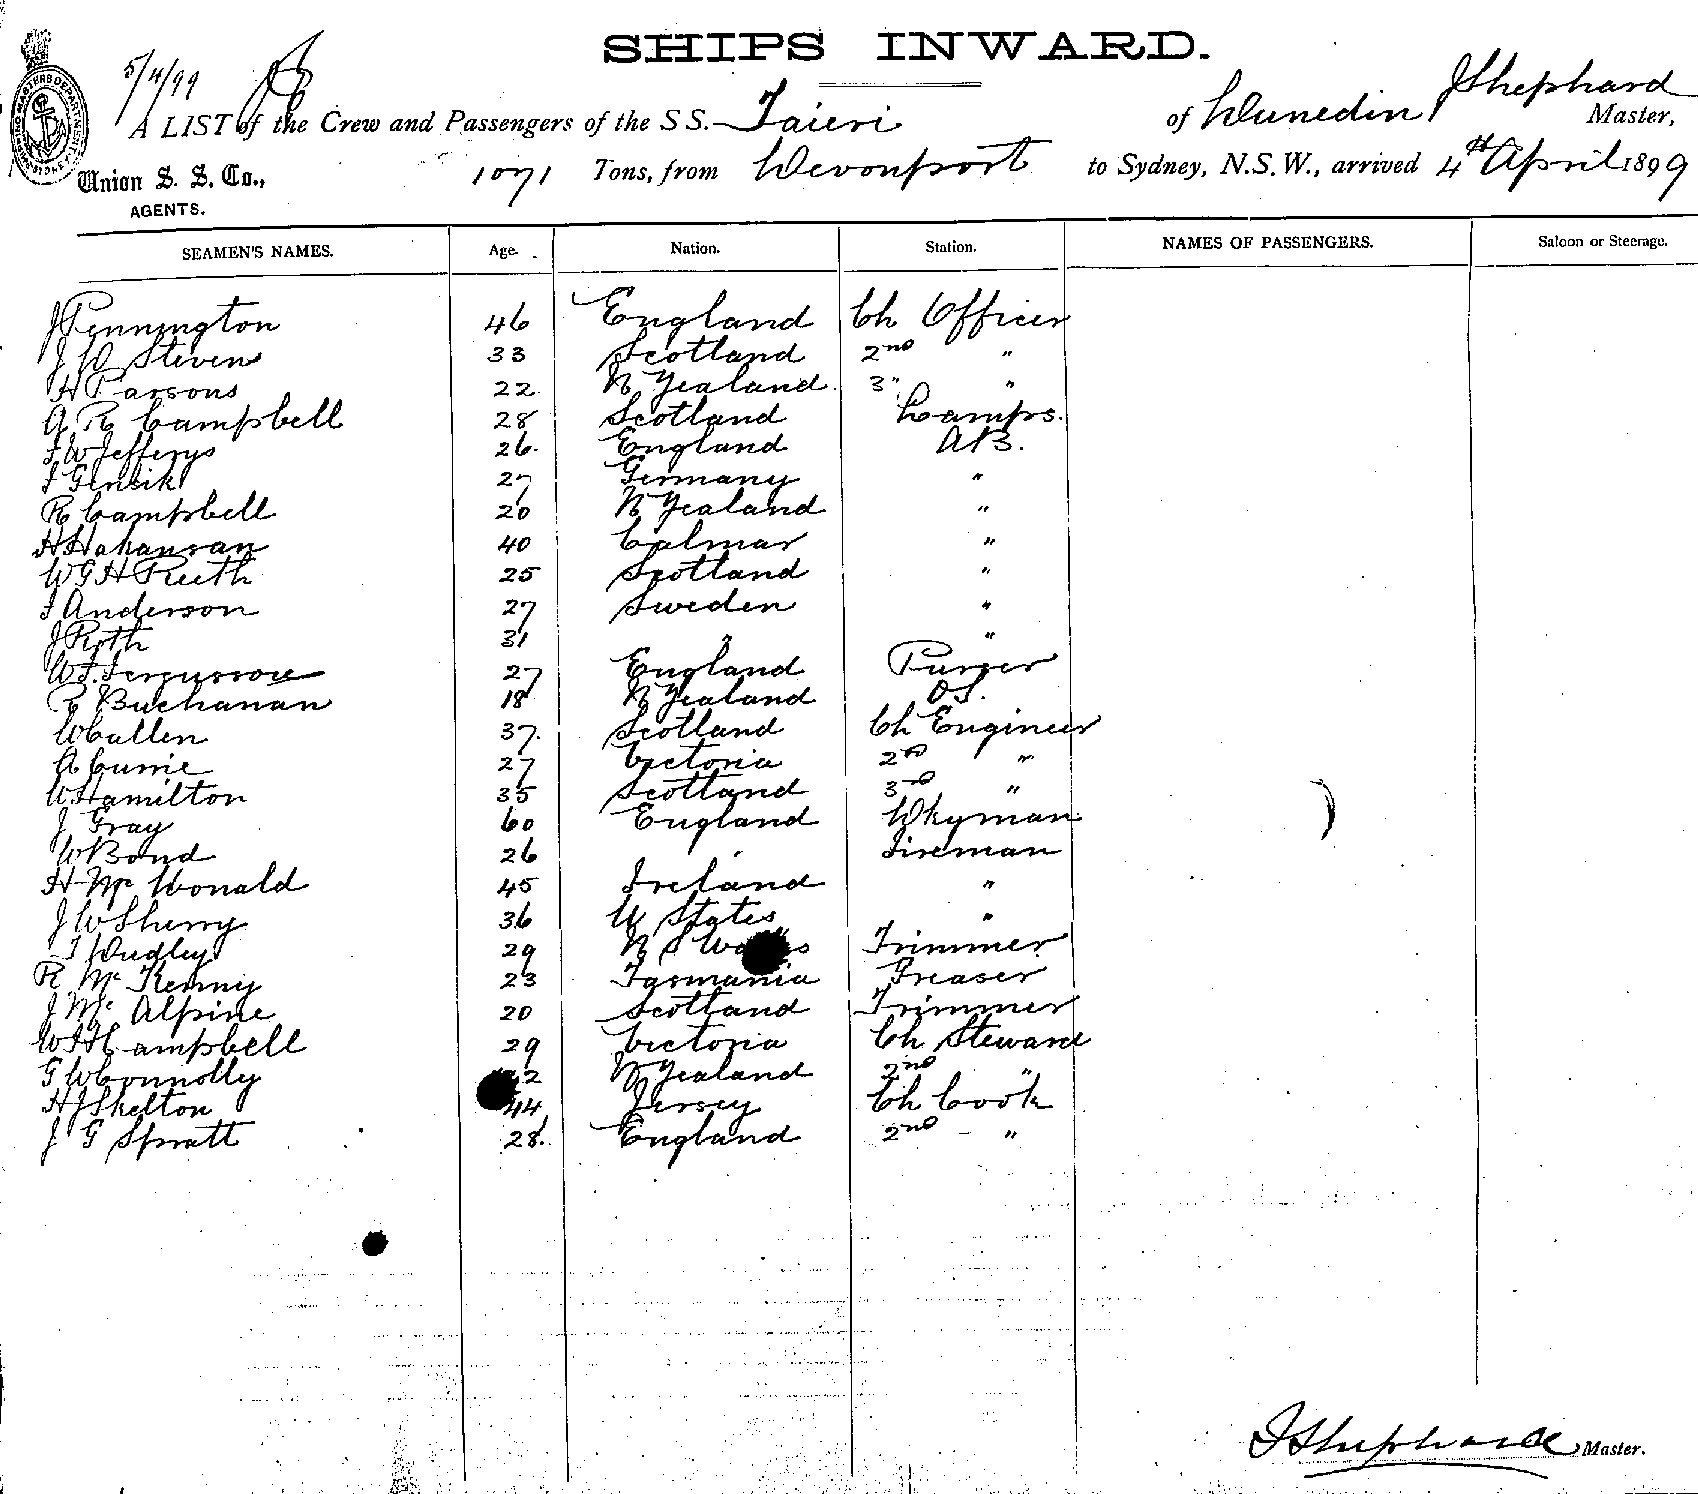 SHIPS INWARD.
5/4/99
A LIST of the Crew and Passengers of the S S. Taieri of Dunedin J Shephard Master,
Union S. S. Co., 1071 Tons, from Devonport to Sydney, N.S.W., arrived 4th April 1899
AGENTS.
SEAMEN'S NAMES. Age. Nation. Station. NAMES OF PASSENGERS. Saloon or Steerage.
J Pennington 46 England Ch Officer
J D Steven 33 Scotland 2nd "
H Parsons 22 N Zealand 3" "
A R Campbell 28 Scotland Lamps.
F W Jefferys 26. England AB.
J Glnsik 27 Germany "
R Campbell 20 N Zealand "
H Hakansan 40 Calmar "
W G H Reeth 25 Scotland "
J Anderson 27 Sweden "
J Roth 31 " "
W. F. Fergusson 27 England Purser
R Buchanan 18 N Zealand OS.
W Cullen 37. Scotland Ch Engineer
A Currie 27 Victoria 2nd "
W. Hamilton 35 Scotland 3rd "
J Gray 60 England Dkyman
W Bond 26 " Fireman
H Mc Donald 45 Ireland "
J W Sherry 36 U States "
T Dudley 29 N S Wales Trimmer
R Mc Kenny 23 Tasmania Greaser
J Mc Alpine 20 Scotland Trimmer
W J H Campbell 29 Victoria Ch Steward
G W Connolly 2 N Zealand 2nd "
H J Skelton 44 Jersey Ch Cook
J G Spratt 28. England 2nd "
J Shephard Master.